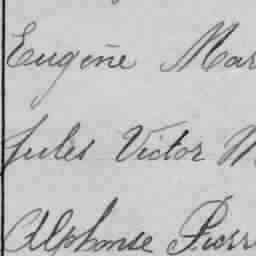 Eugène Mar
Jules Victor M
Alphonse Pierr